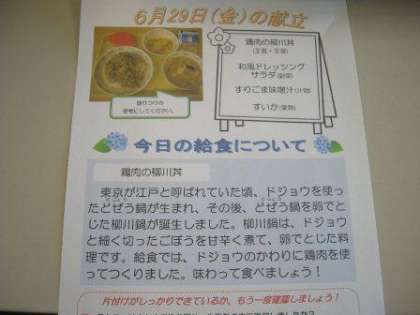 6月29日(金)の献立
鶏肉の柳川丼
(主食・主菜)
和風ドレッシング
サラダ(副菜)
すりごま味噌汁(汁物)
すいか(果物)
盛りつけの
参考にしてください。
今日の給食について
鶏肉の柳川丼
東京が江戸と呼ばれていた頃、ドジョウを使っ
たどぜう鍋が生まれ、その後、どぜう鍋を卵でと
じた柳川鍋が誕生しました。柳川鍋は、ドジョウ
と細く切ったごぼうを甘辛く煮て、卵でとじた料
理です。給食では、ドジョウのかわりに鶏肉を使
ってつくりました。味わって食べましょう!
片付けがしっかりできているか、もう一度確認しましょう!